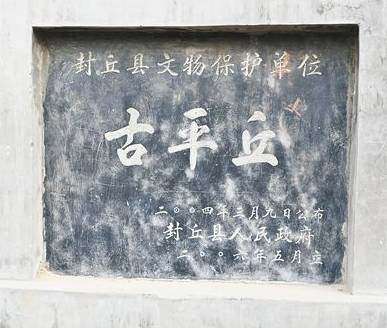 封丘县文物保护单位
古平丘
二〇〇四年三月九日公布
封丘县人民政府
二〇〇六年五月立